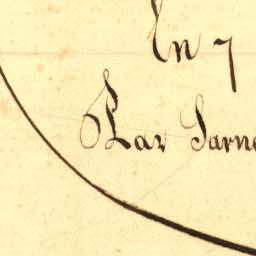 En 7
Par Sarn